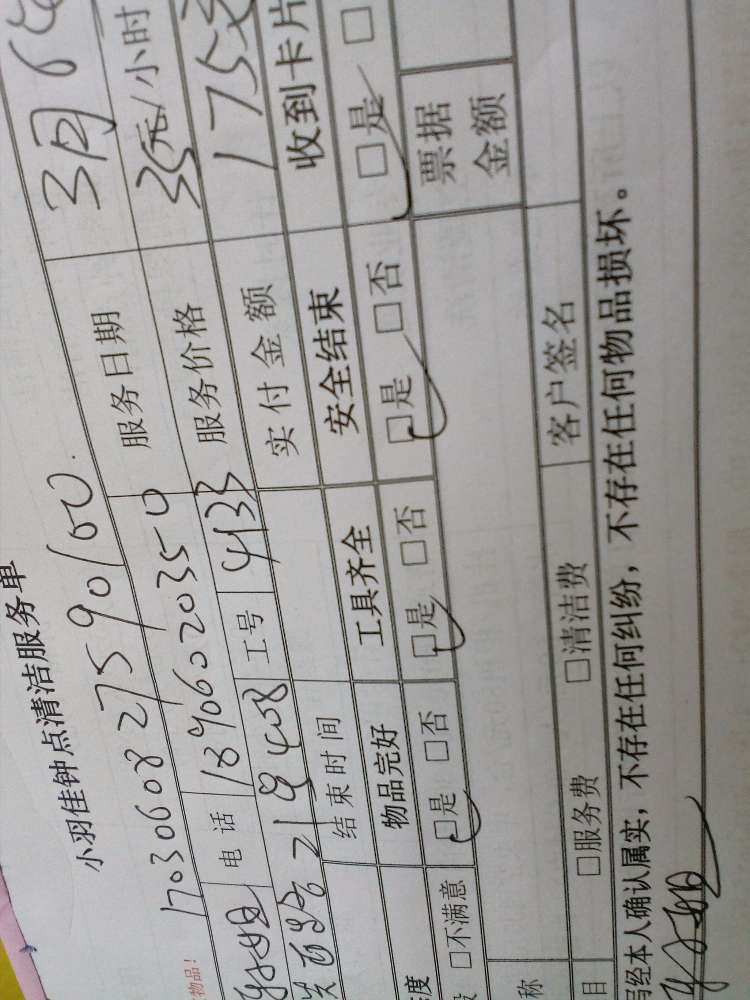 小羽佳钟点清洁服务单
物品！
1703060827590100 服务日期 3月6
电话 18960203550 服务价格 35元/小时
219 408 工号 4133 实付金额 175
结束时间 安全结束 收到卡片
物品完好 工具齐全
度 □不满意 □是 □否 □是 □否 □是 □否 □是 □
票据金额
称
目 □服务费 □清洁费 客户签名
经本人确认属实，不存在任何纠纷，不存在任何物品损坏。